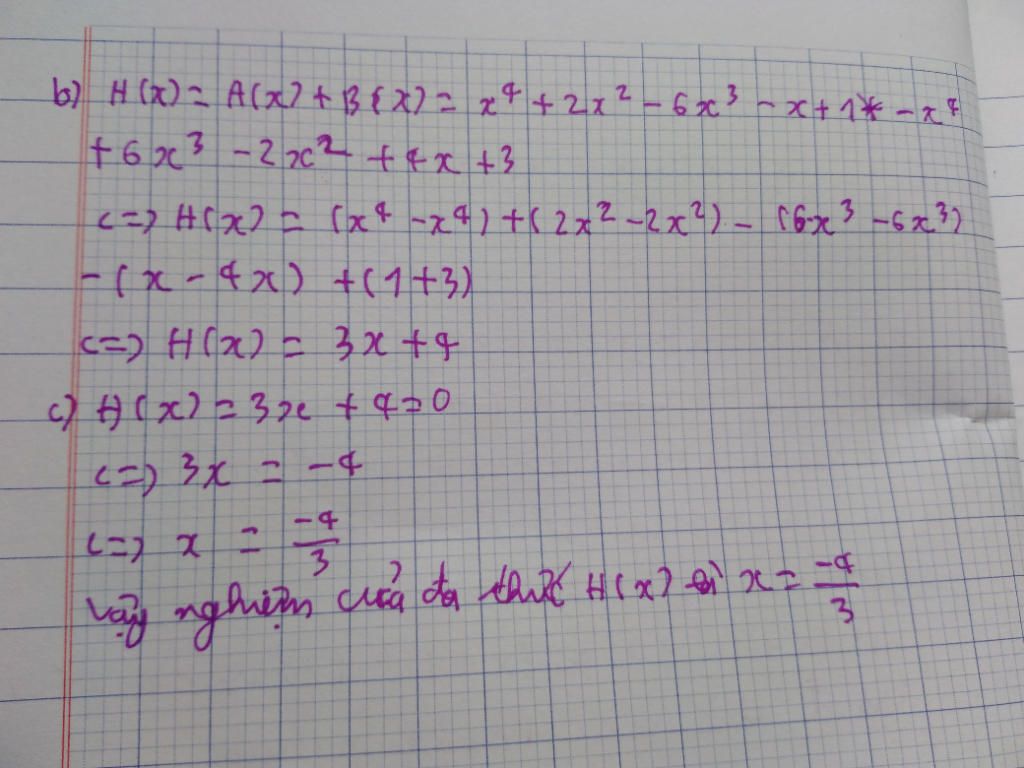 b) H(x) = A(x) + B(x) = x⁴ + 2x² - 6x³ - x + 1 - x⁴
+ 6x³ - 2x² + 4x + 3
<=> H(x) = (x⁴ - x⁴) + (2x² - 2x²) - (6x³ - 6x³)
- (x - 4x) + (1 + 3)
<=> H(x) = 3x + 4
c) H(x) = 3x + 4 = 0
<=> 3x = -4
<=> x = -4/3
Vậy nghiệm của đa thức H(x) là x = -4/3